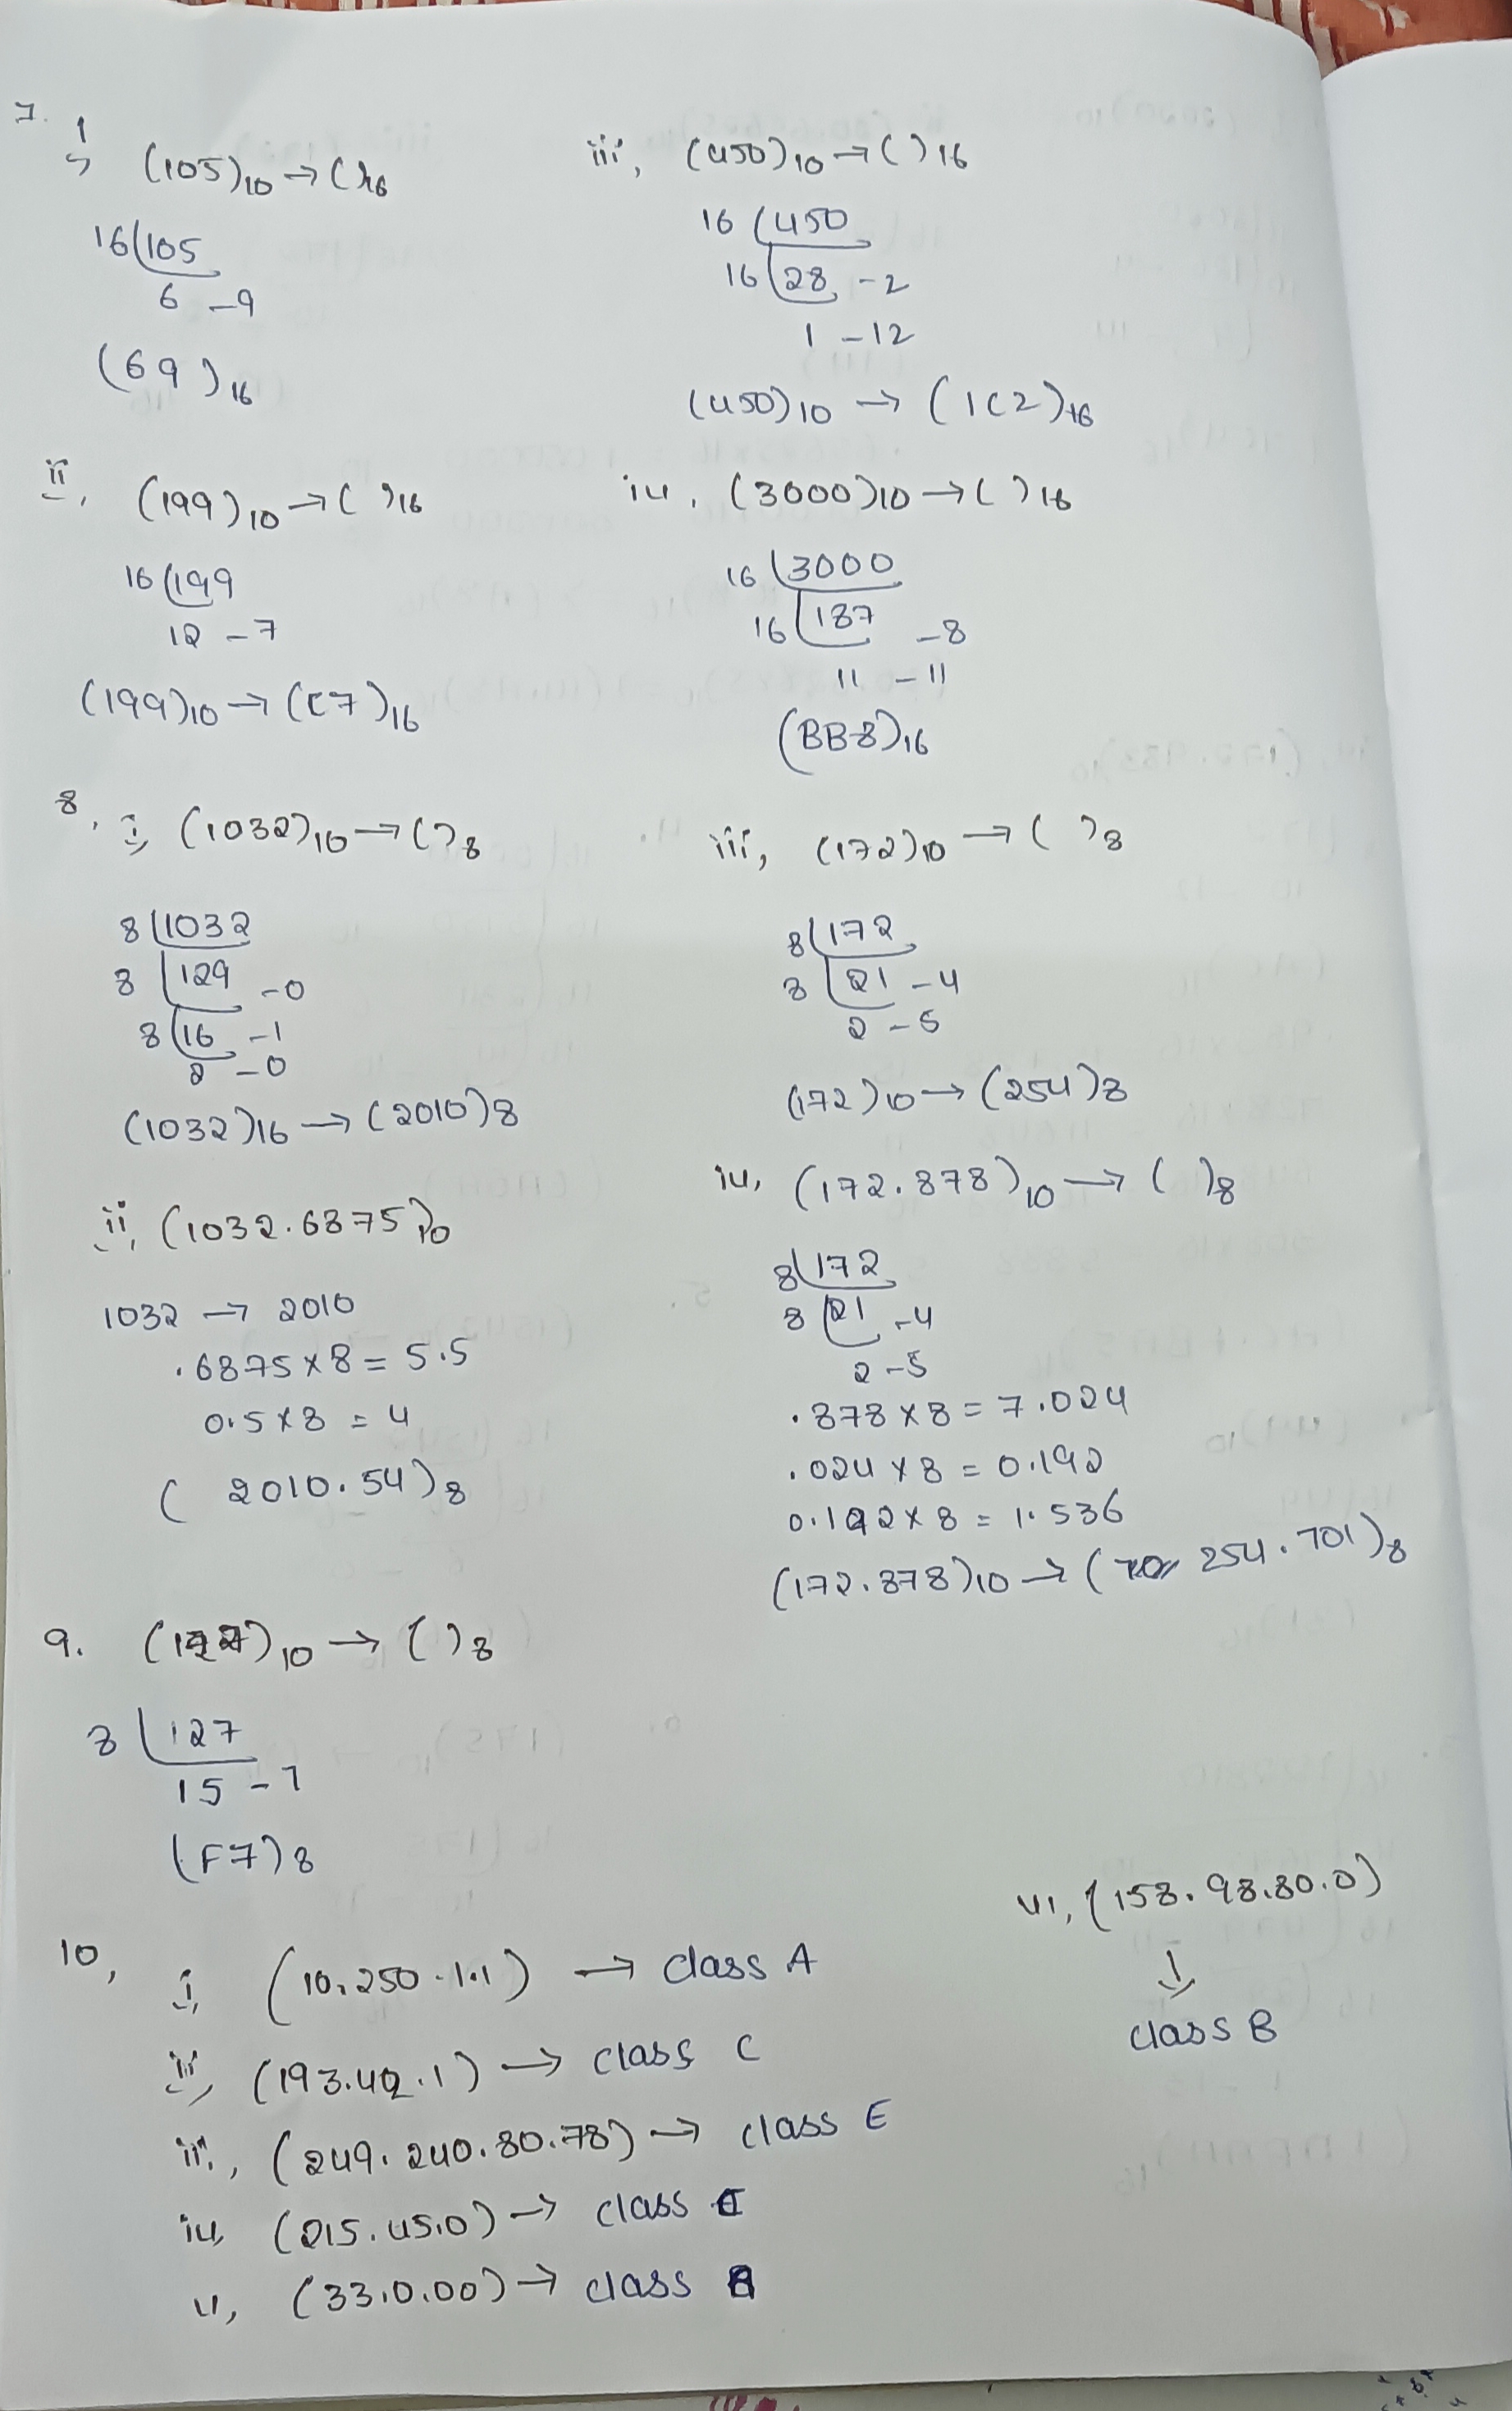 7.
i, (105)10 → ( )16
16 105
6 - 9
(69)16
ii, (199)10 → ( )16
16 199
12 - 7
(199)10 → (C7)16
iii, (450)10 → ( )16
16 450
16 28 - 2
1 - 12
(450)10 → (1C2)16
iv, (3000)10 → ( )16
16 3000
16 187 - 8
11 - 11
(BB8)16
8, i, (1032)10 → ( )8
8 1032
8 129 - 0
8 16 - 1
2 - 0
(1032)16 → (2010)8
ii, (1032.6875)10
1032 → 2010
.6875 x 8 = 5.5
0.5 x 8 = 4
( 2010.54)8
iii, (172)10 → ( )8
8 172
8 21 - 4
2 - 5
(172)10 → (254)8
iv, (172.878)10 → ( )8
8 172
8 21 - 4
2 - 5
.878 x 8 = 7.024
.024 x 8 = 0.192
0.192 x 8 = 1.536
(172.878)10 → ( 254.701)8
9. (127)10 → ( )8
8 127
15 - 7
(F7)8
10,
i, (10.250.1.1) → class A
ii, (193.42.1) → class C
iii, (249.240.80.78) → class E
iv, (215.45.0) → class C
v, (33.0.00) → class A
vi, (158.98.80.0)
↓
class B